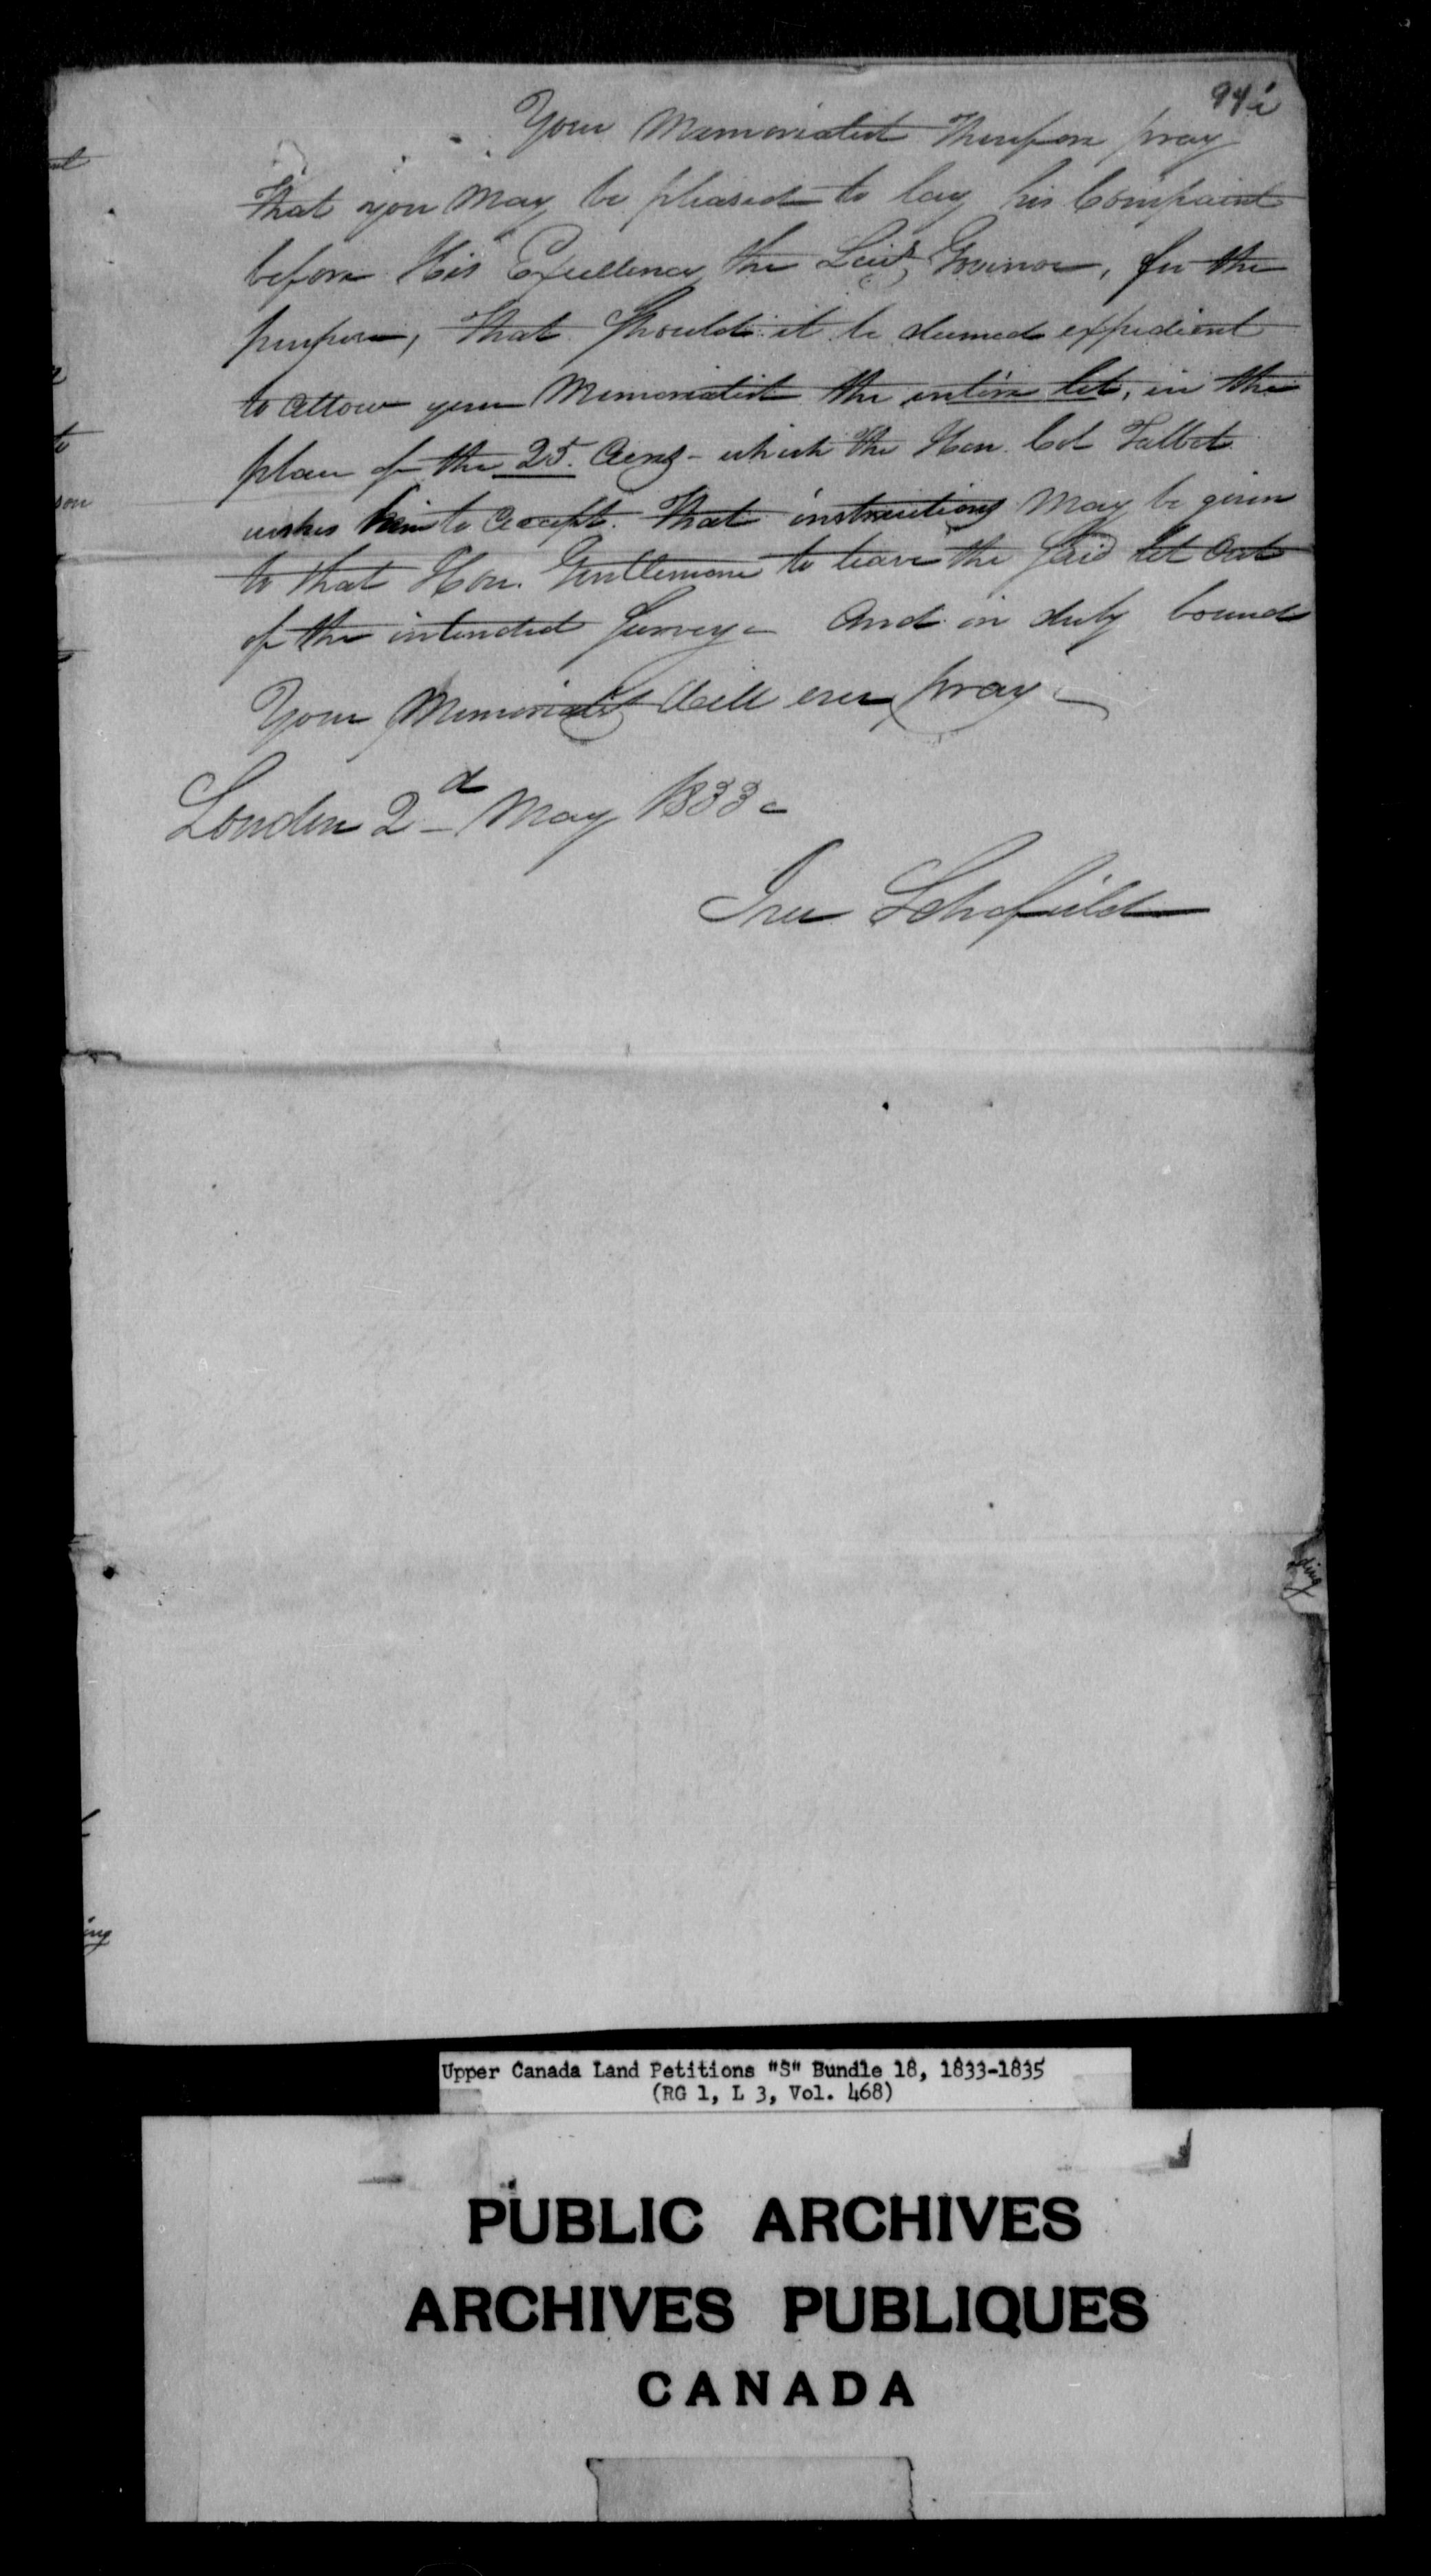 94i
Your Memorialist Therefore pray
That you May be pleased to lay his Compaint
before His Excellency the Lieut Governor, for the
purpose, That Should it be deemed expedient
to allow your Memorialist the entire lot, in the
place of the 25. Acres - which the Hon. Col Talbot
wishes him to Accept. That instructions May be given
to that Hon. Gentlemane to leave the Said lot Out
of the intended Survey - And in duty bound
Your Memorialist Will ever pray -
London 2d May 1833 -
Ira Schofield
son
to
ing
ding
Upper Canada Land Petitions "S" Bundle 18, 1833-1835
(RG 1, L 3, Vol. 468)
PUBLIC ARCHIVES
ARCHIVES PUBLIQUES
CANADA